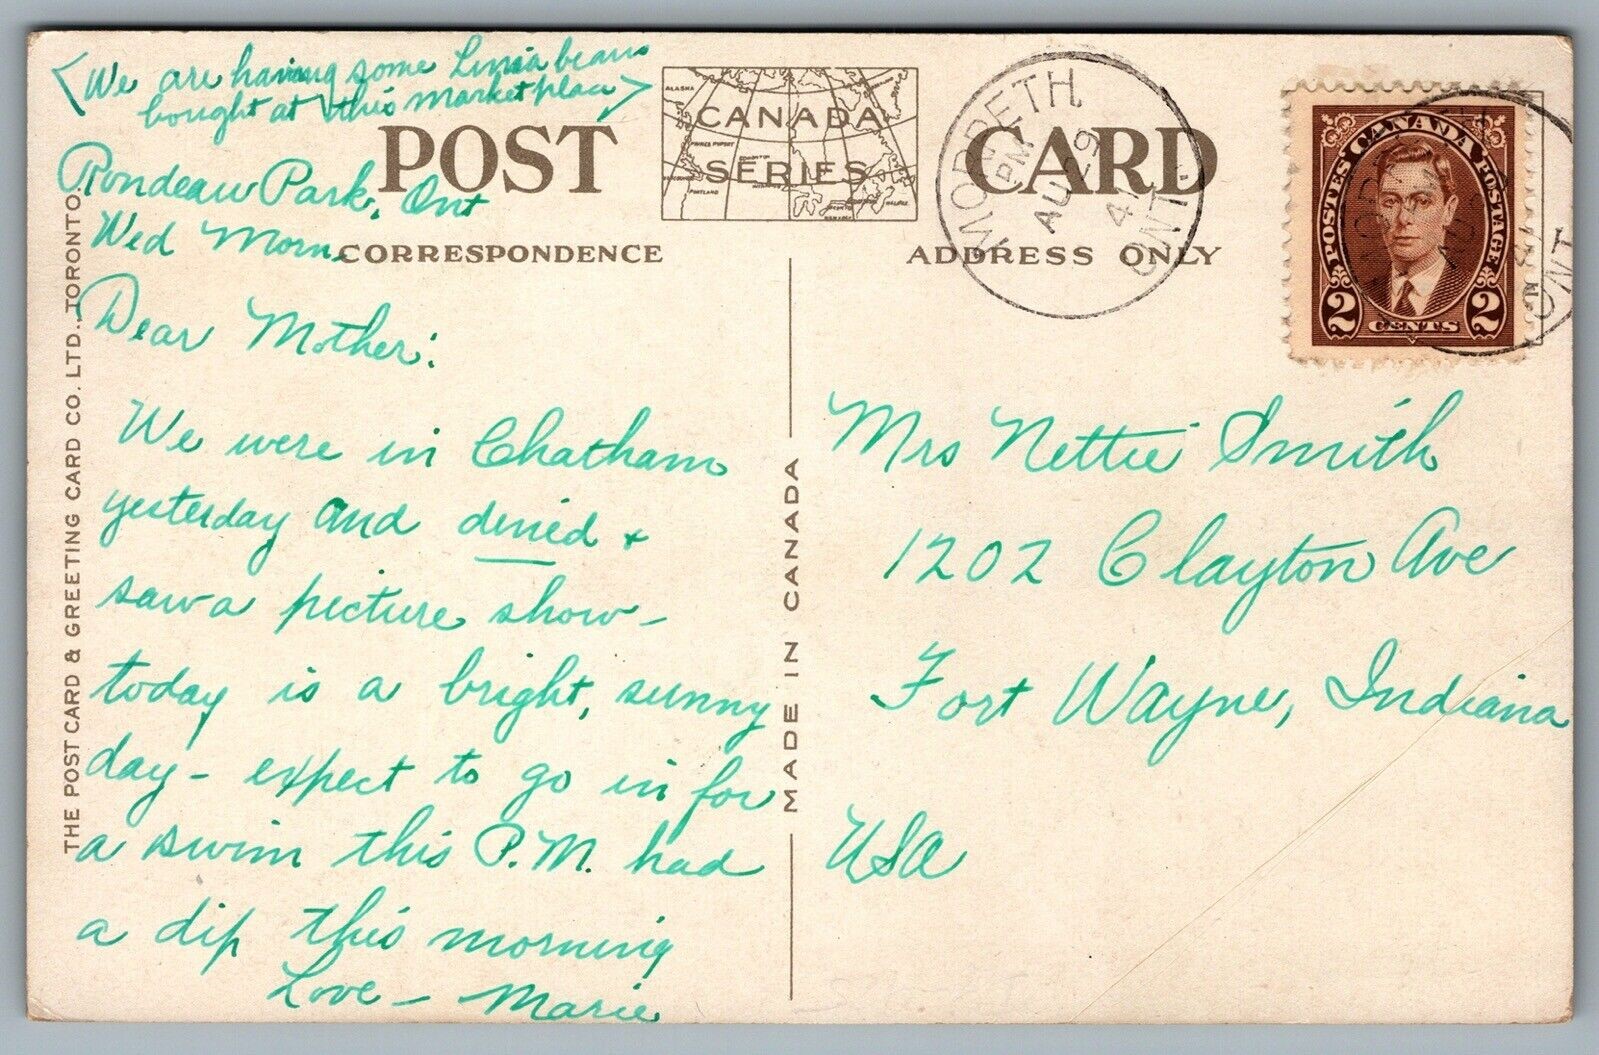 <We are having some Lima beans
bought at this market place>
POST CARD
CANADA
SERIES
CORRESPONDENCE
ADDRESS ONLY
MORPETH
PM
AU 29
ONT.
POSTES CANADA POSTAGE
2 CENTS 2
Rondeau Park, Ont
Wed Morn.
Dear Mother:
We were in Chatham
yesterday and dined &
saw a picture show –
today is a bright, sunny
day – expect to go in for
a swim this P.M. had
a dip this morning
Love – Marie
Mrs Nettie Smith
1202 Clayton Ave
Fort Wayne, Indiana
USA
MADE IN CANADA
THE POST CARD & GREETING CARD CO. LTD., TORONTO.